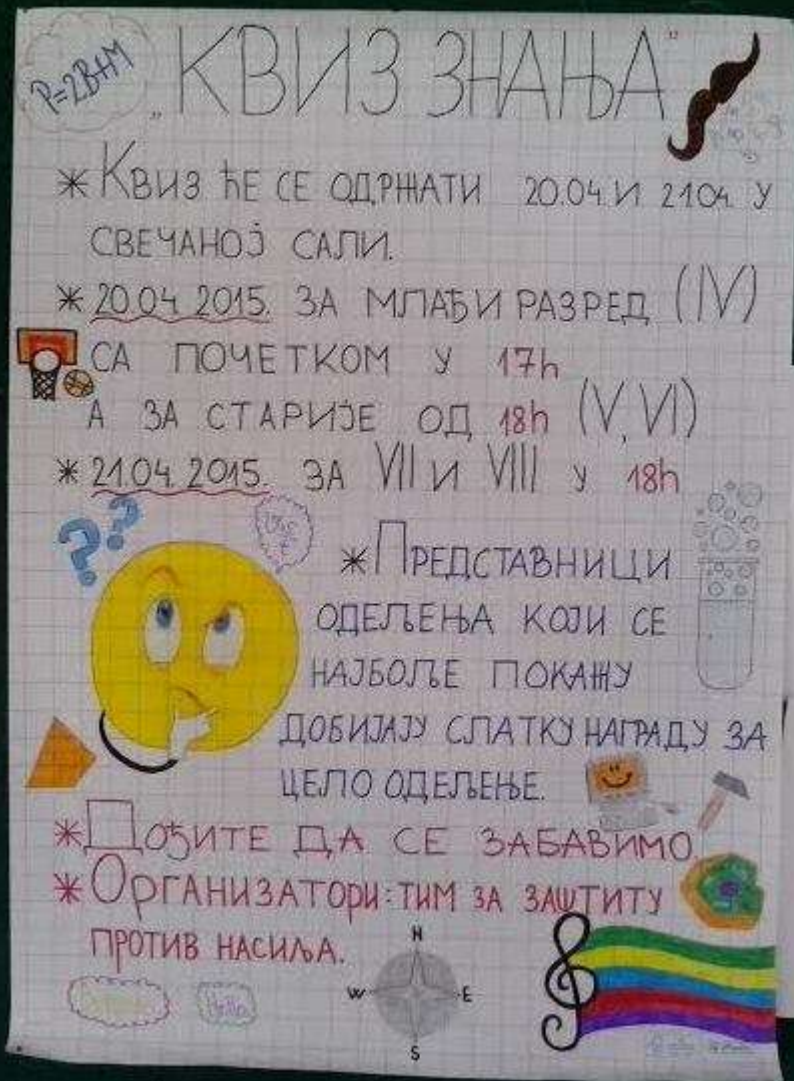 P=2B+M
„КВИЗ ЗНАЊА"
* КВИЗ ЋЕ СЕ ОДРЖАТИ 20.04. И 21.04. У
СВЕЧАНОЈ САЛИ.
* 20.04.2015. ЗА МЛАЂИ РАЗРЕД (IV)
СА ПОЧЕТКОМ У 17h
А ЗА СТАРИЈЕ ОД 18h (V, VI)
* 21.04.2015. ЗА VII И VIII У 18h
? ?
* ПРЕДСТАВНИЦИ
ОДЕЉЕЊА КОЈИ СЕ
НАЈБОЉЕ ПОКАЖУ
ДОБИЈАЈУ СЛАТКУ НАГРАДУ ЗА
ЦЕЛО ОДЕЉЕЊЕ.
* ДОЂИТЕ ДА СЕ ЗАБАВИМО.
* ОРГАНИЗАТОРИ: ТИМ ЗА ЗАШТИТУ
ПРОТИВ НАСИЉА.
N
W E
S